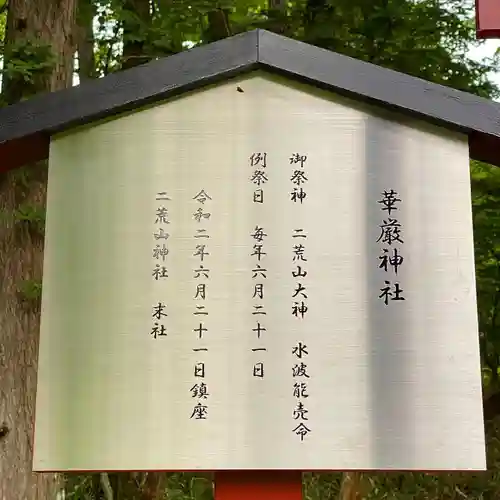 華厳神社
御祭神　二荒山大神　水波能売命
例祭日　毎年六月二十一日
令和二年六月二十一日鎮座
二荒山神社　末社